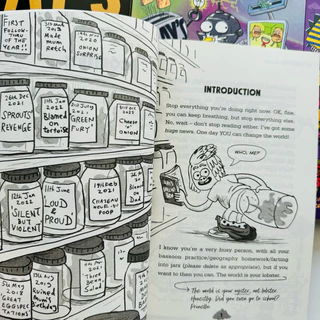 FIRST
FOLLOW-
THROUGH
OF THE
YEAR!!
MADE
MUM
RETCH
2020
ONION
SURPRISE
26th Dec
2021
SPROUTS'
REVENGE
11th Jan
2022
Blamed
on
tortoise
2nd July
2021
GREEN
FURY
Cheese
'n'
Onion
12th Jan
2022
SILENT
BUT
VIOLENT
11th June
LOUD
&
PROUD
19th Feb
2021
CHATEAU
NEUF-DU-
POOP
Blamed
on
Dad
2018
GREAT
EGGSPEC-
TATIONS
2019
Ruined
Mum's
Birthday
2021
Three
Bean
Salad
INTRODUCTION
Stop everything you're doing right now. OK, fine,
you can keep breathing, but stop everything else.
No, wait – don't stop reading either. I've got some
huge news. One day YOU can change the world!
WHO, ME?
I know you're a very busy person, with all your
bassoon practice/geography homework/farting
into jars (please delete as appropriate), but if you
want to then you can. The world is your lobster.
The world is your oyster, not lobster.
Honestly. Did you even go to school?
Prunella
1